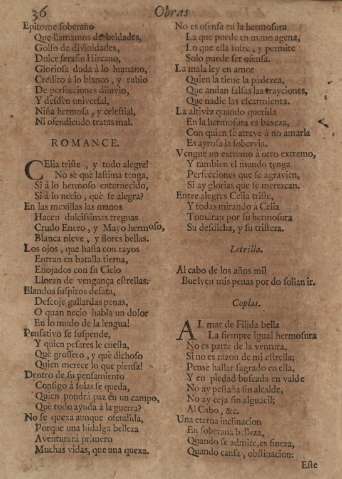 36 Obras
Epitome soberano
Que llamamos de beldades,
Golfo de divinidades,
Dulce serafin Hircano,
Gloriosa duda à lo humano,
Credito à lo blanco, y rubio
De perfecciones diluvio,
Y desseo universal,
Niña hermosa, y celestial,
Ni ofendiendo tratas mal.
ROMANCE.
CElia triste, y todo alegre!
No sè què lastima tenga,
Si à lo hermoso enternecido,
Si à lo necio, què se alegra?
En las mexillas las manos
Hacen dulcissimas treguas
Crudo Enero, y Mayo hermoso,
Blanca nieve, y flores bellas.
Los ojos, que hasta con rayos
Entran en batalla tierna,
Enojados con su Cielo
Llueven de vengança estrellas.
Blandos suspiros desata,
Descoje gallardas penas,
O quan necio habla un dolor
En lo mudo de la lengua!
Pensativo se suspende,
Y quien pesares le cuesta,
Què grossero, y què dichoso
Quien merece lo que piensa!
Dentro de su pensamiento
Consigo à solas se queda,
Quien pondrà paz en un campo,
Que todo ayuda à la guerra?
No se quexa aunque ofendida,
Porque una hidalga belleza
Aventurarà primero
Muchas vidas, que una quexa.
No es ofensa en la hermosura
La que puede en mano agena,
Lo que ella sufre, y permite
Solo puede ser ofensa.
La mala ley en amor
Quien la tiene la padezca,
Que andan falsas las trayciones,
Que nadie las escarmienta.
La altivez quando querida
En la hermosura es baxeza,
Con quien se atreve à no amarla
Es ayrosa la sobervia.
Vengue un extremo à otro extremo,
Y tambien el mundo tenga
Perfecciones que se agravien,
Si ay glorias que se merezcan.
Entre alegres Celia triste,
Y todas mirando à Celia
Tomaran por su hermosura
Su desdicha, y su tristeza.
Letrilla.
Al cabo de los años mil
Buelven mis penas por do solian ir.
Coplas.
AL mar de Filida bella
La siempre igual hermosura
No es parte de la ventura,
Si no es razon de mi estrella;
Pense hallar sagrado en ella,
Y en piedad buscada en valde
No ay pestaña sin alcalde,
No ay ceja sin alguacil;
Al Cabo, &c.
Una eterna inclinacion
En soberana belleza,
Quando se admite, es fineza,
Quando cansa, obstinacion:
Este